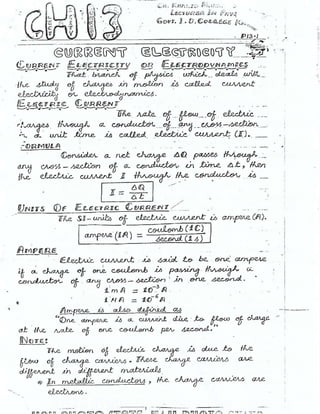 CH13
LECTURER IN PHY
GOVT. I. D. COLLEGE
P13-1
CURRENT ELECTRICITY
CURRENT ELECTRICITY OR ELECTRODYNAMICS
That branch of physics which deals with
the study of charges in motion is called current
electricity or electrodynamics.
ELECTRIC CURRENT
The rate of flow of electric
charges through a conductor of any cross-section
in a unit time is called electric current (I).
FORMULA
Consider a net charge ΔQ passes through
any cross-section of a conductor in time Δt, then
the electric current I through the conductor is
I = ΔQ / Δt
UNITS OF ELECTRIC CURRENT
The SI-units of electric current is ampere (A).
ampere (1A) = coulomb (1C) / second (1s)
AMPERE
Electric current is said to be one ampere
if a charge of one coulomb is passing through a
conductor of any cross-section in one second.
1mA = 10⁻³A
1μA = 10⁻⁶A
Ampere is also defined as
"One ampere is a current due to flow of charge
at the rate of one coulomb per second."
NOTE:
The motion of electric charge is due to the
flow of charge carriers. These charge carriers are
different in different materials
* In metallic conductors, the charge carriers are
electrons.